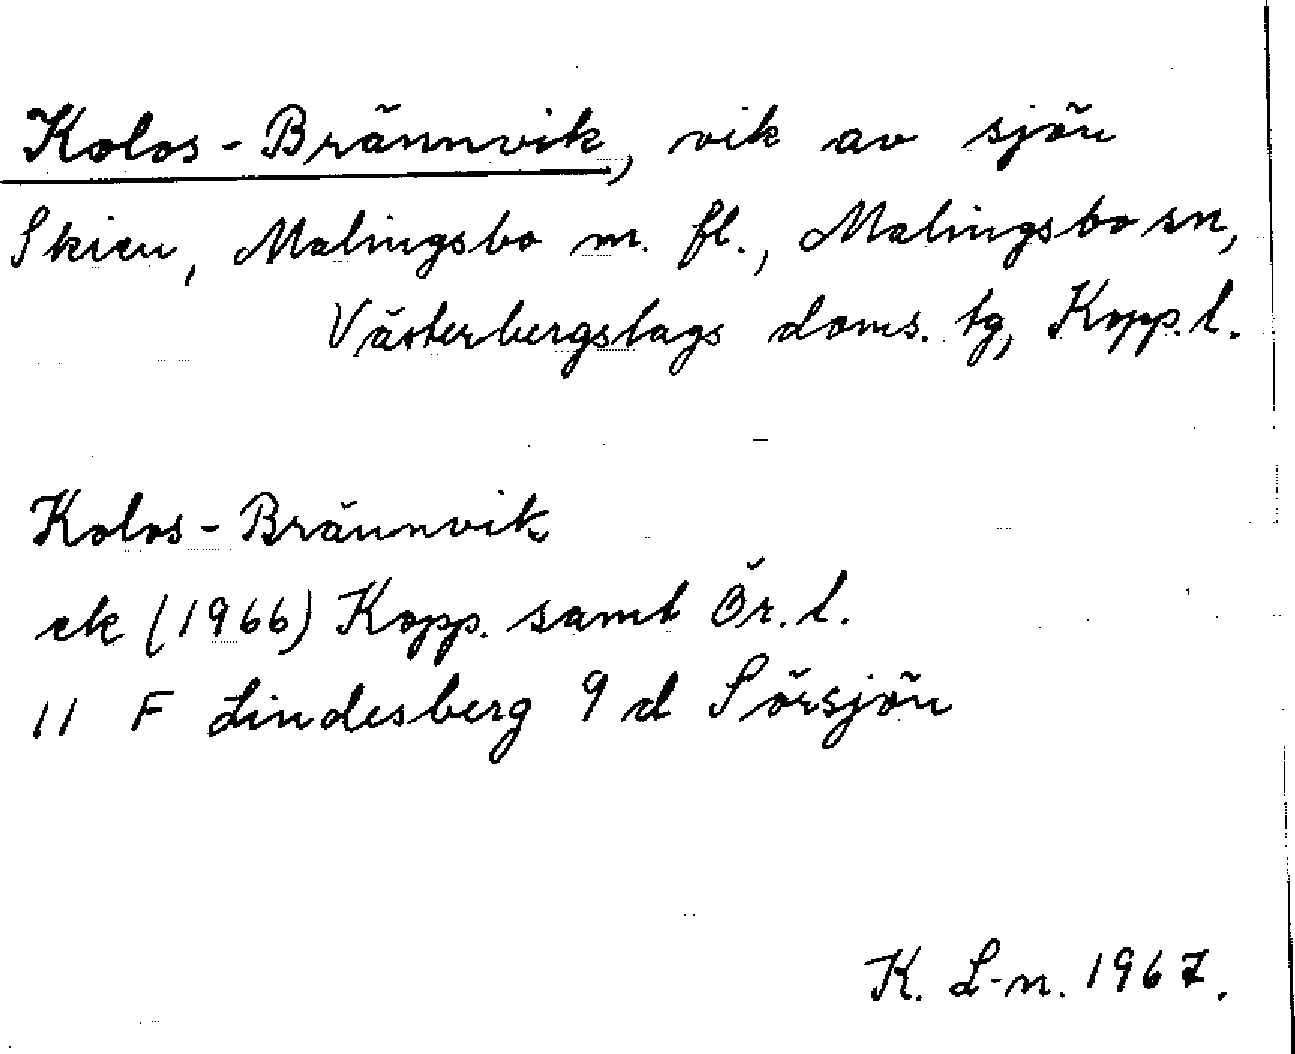 Kolos-Brännvik, vik av sjön
Skien, Malingsbo m. fl., Malingsbo sn,
Västerbergslags doms. tg, Kopp. l.
Kolos-Brännvik
ek (1966) Kopp. samt Ör. l.
11 F Lindesberg 9 d Sörsjön
K. L-n. 1967.